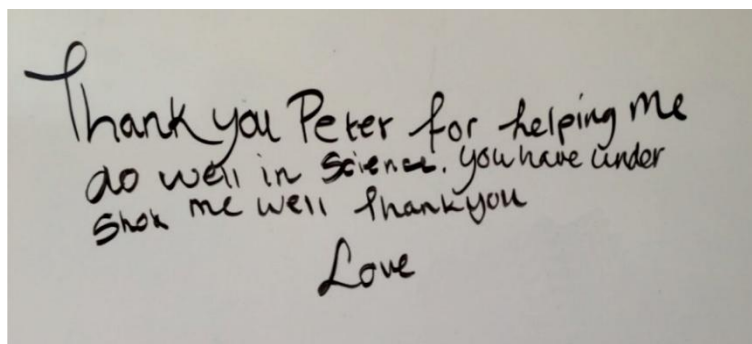 Thank you Peter for helping me
do well in Science. You have under
Shok me well Thankyou
Love